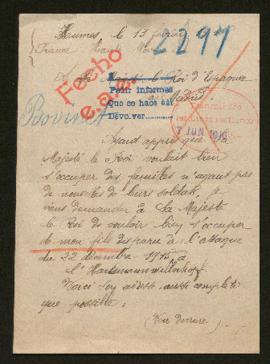 Haumes le 13
2297
France Haute
A sa Majesté le Roi d'Espagne
Fecho
e.a.s.
Madrid
Pedir informes
Que se hace así
Devolver
7 JUN 1916
Ayant appris que Sa
Majesté le Roi voulait bien
s'occuper des familles n'ayant pas
de nouvelles de leurs soldats, je
viens demander à Sa Majesté
le Roi de vouloir bien s'occuper
de mon fils disparu à l'attaque
du 22 décembre 1915, à
l'Hartmannwillerkopf
Voici son adresse aussi complète
que possible :